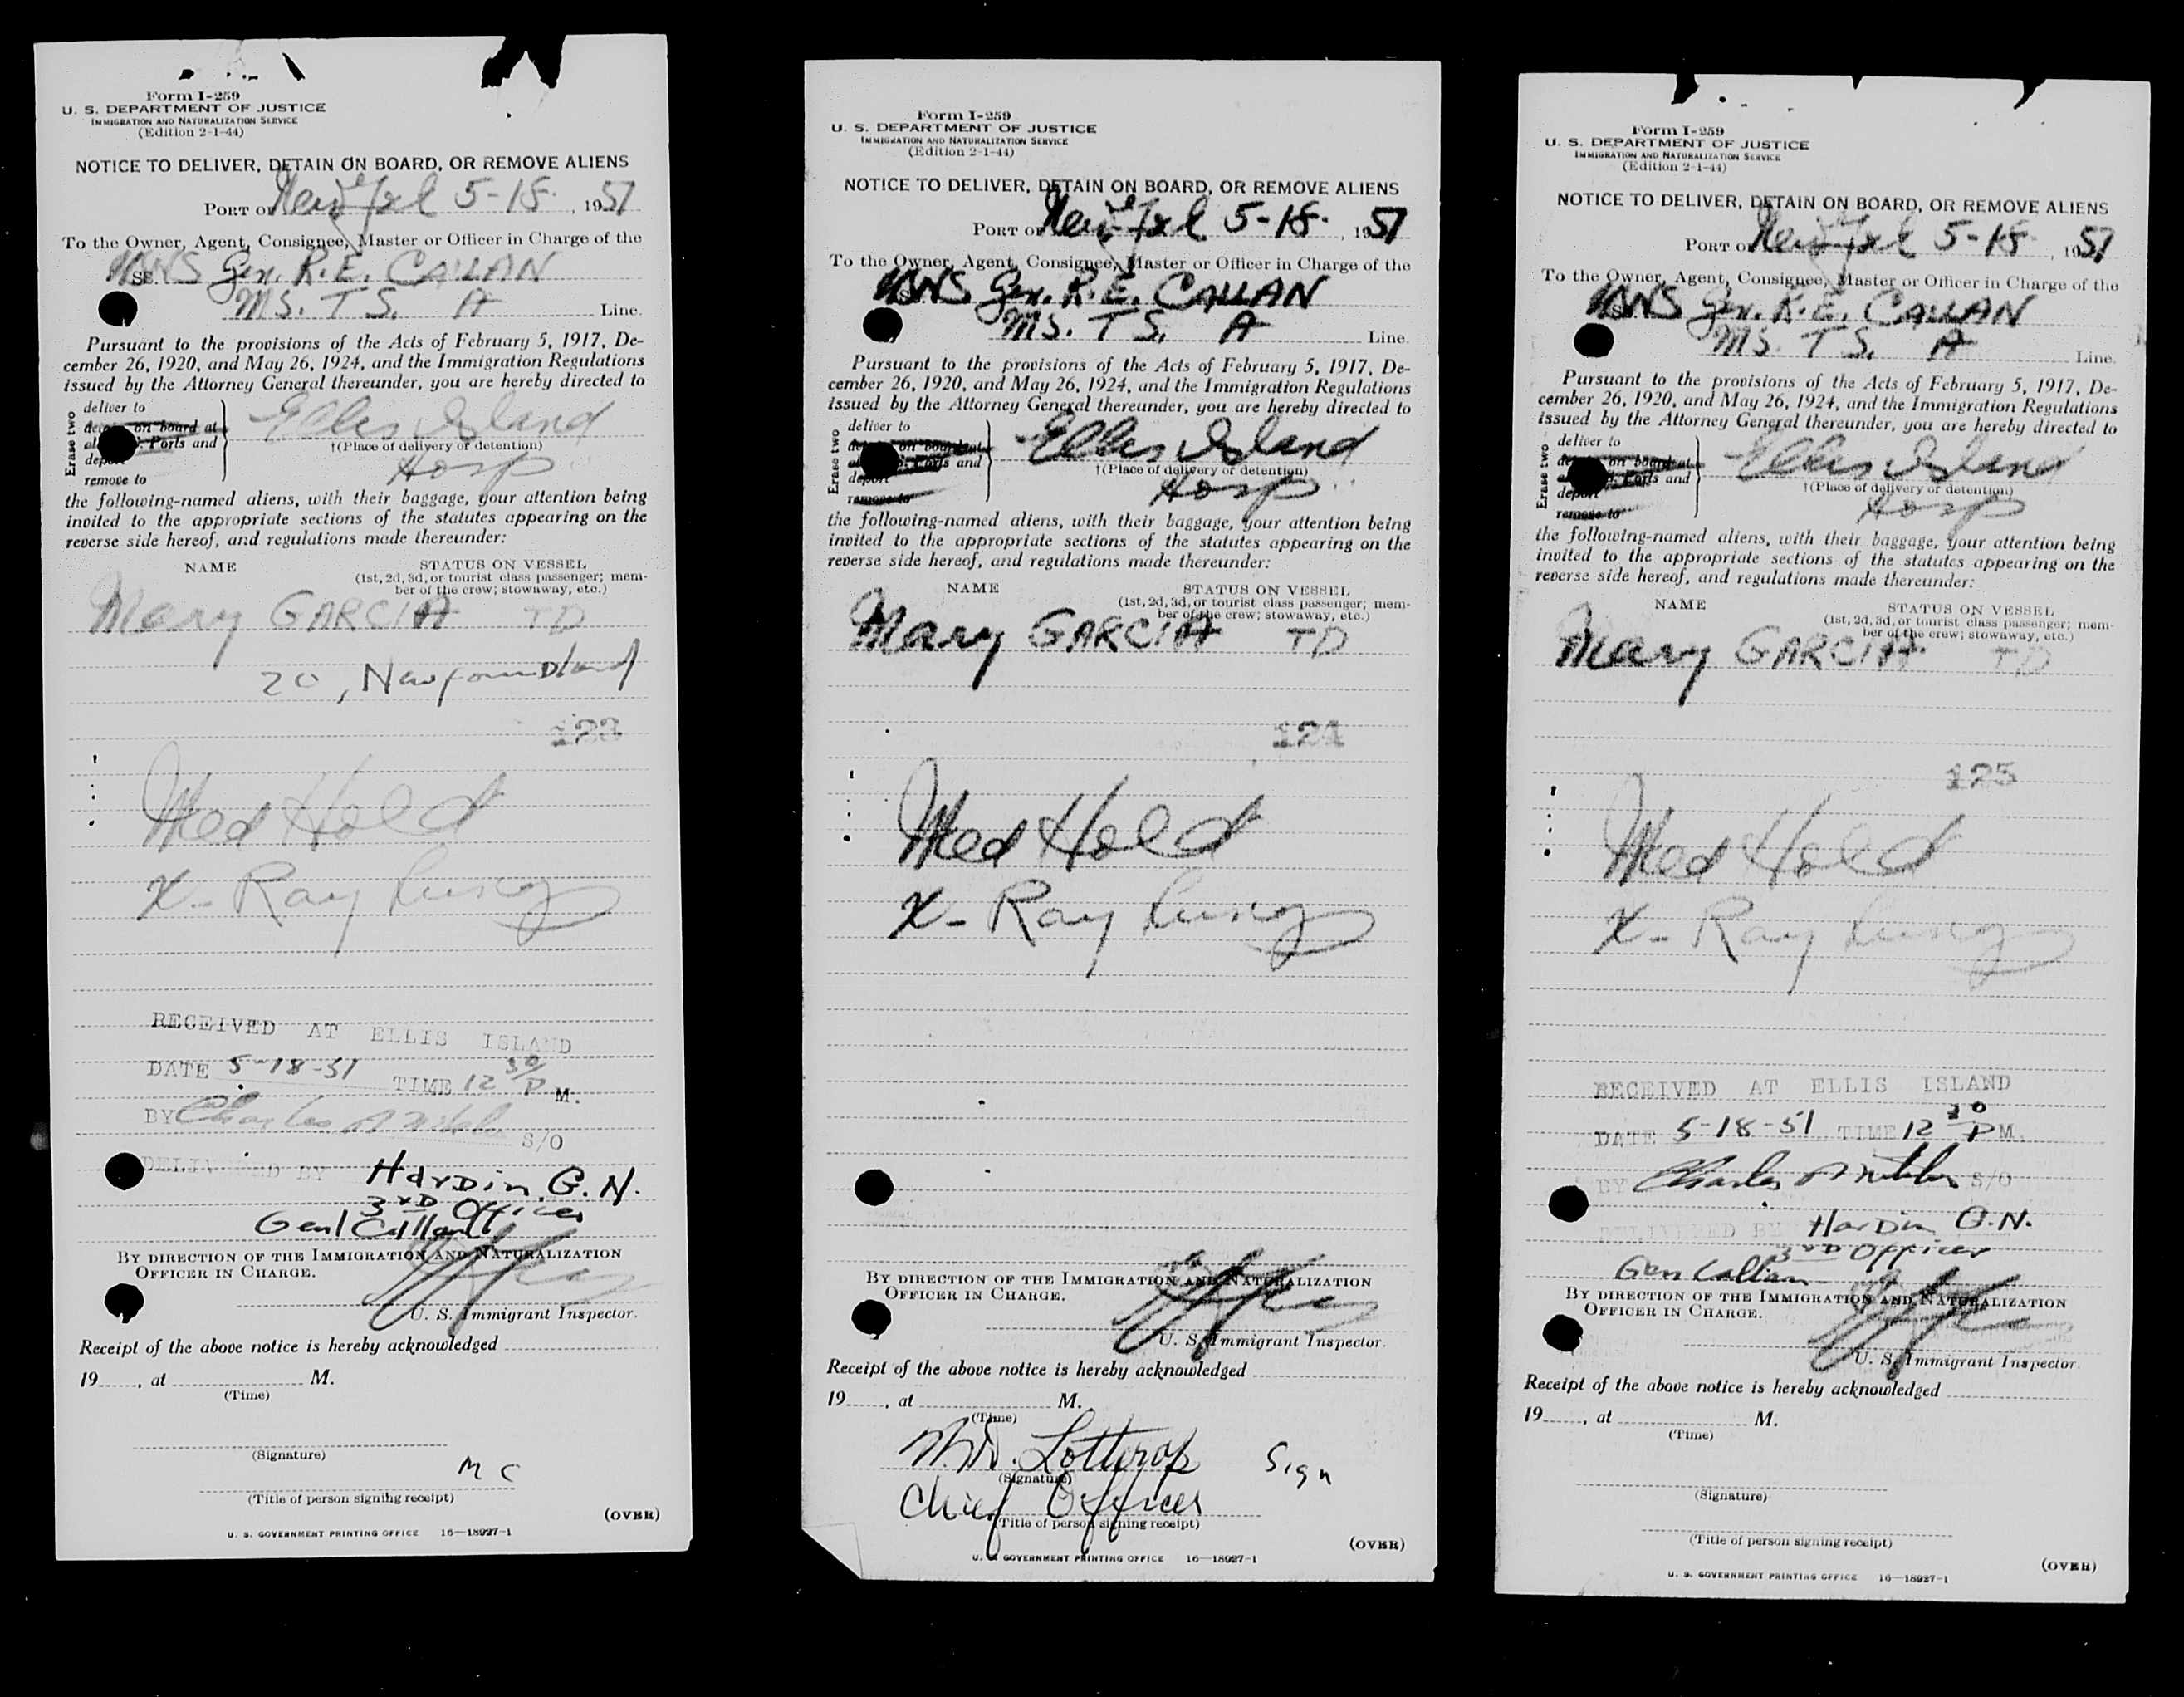 Form I-259
U. S. DEPARTMENT OF JUSTICE
IMMIGRATION AND NATURALIZATION SERVICE
(Edition 2-1-44)
NOTICE TO DELIVER, DETAIN ON BOARD, OR REMOVE ALIENS
PORT OF New York 5-18- , 1951
To the Owner, Agent, Consignee, Master or Officer in Charge of the
SS. USNS Gen. R. E. CALLAN
M.S.T.S. A Line.
Pursuant to the provisions of the Acts of February 5, 1917, De-
cember 26, 1920, and May 26, 1924, and the Immigration Regulations
issued by the Attorney General thereunder, you are hereby directed to
Erase two
deliver to
on board at
Ports and
remove to
Ellis Island
†(Place of delivery or detention)
Hosp
the following-named aliens, with their baggage, your attention being
invited to the appropriate sections of the statutes appearing on the
reverse side hereof, and regulations made thereunder:
NAME STATUS ON VESSEL
(1st, 2d, 3d, or tourist class passenger; mem-
ber of the crew; stowaway, etc.)
Mary GARCIA TD
20, Newfoundland
123
Med Hold
X-Ray Lung
RECEIVED AT ELLIS ISLAND
DATE 5-18-51 TIME 12 30/P M.
BY Charles A S/O
DELIVERED BY Hardin G.N.
3rd Officer
Genl Callan
BY DIRECTION OF THE IMMIGRATION AND NATURALIZATION
OFFICER IN CHARGE.
U. S. Immigrant Inspector.
Receipt of the above notice is hereby acknowledged
19 , at M.
(Time)
(Signature)
M C
(Title of person signing receipt)
(OVER)
U. S. GOVERNMENT PRINTING OFFICE 16—18927-1
Form I-259
U. S. DEPARTMENT OF JUSTICE
IMMIGRATION AND NATURALIZATION SERVICE
(Edition 2-1-44)
NOTICE TO DELIVER, DETAIN ON BOARD, OR REMOVE ALIENS
PORT OF New York 5-18- , 1951
To the Owner, Agent, Consignee, Master or Officer in Charge of the
USNS Gen. R. E. CALLAN
M.S.T.S. A Line.
Pursuant to the provisions of the Acts of February 5, 1917, De-
cember 26, 1920, and May 26, 1924, and the Immigration Regulations
issued by the Attorney General thereunder, you are hereby directed to
Erase two
deliver to
on board at
Ports and
deport
remove to
Ellis Island
†(Place of delivery or detention)
Hosp
the following-named aliens, with their baggage, your attention being
invited to the appropriate sections of the statutes appearing on the
reverse side hereof, and regulations made thereunder:
NAME STATUS ON VESSEL
(1st, 2d, 3d, or tourist class passenger; mem-
ber of the crew; stowaway, etc.)
Mary GARCIA TD
124
Med Hold
X-Ray Lung
BY DIRECTION OF THE IMMIGRATION AND NATURALIZATION
OFFICER IN CHARGE.
U. S. Immigrant Inspector.
Receipt of the above notice is hereby acknowledged
19 , at M.
(Time)
Lothrop Sign
(Signature)
Chief Officer
(Title of person signing receipt)
(OVER)
U. S. GOVERNMENT PRINTING OFFICE 16—18927-1
Form I-259
U. S. DEPARTMENT OF JUSTICE
IMMIGRATION AND NATURALIZATION SERVICE
(Edition 2-1-44)
NOTICE TO DELIVER, DETAIN ON BOARD, OR REMOVE ALIENS
PORT OF New York 5-18 , 1951
To the Owner, Agent, Consignee, Master or Officer in Charge of the
USNS Gen. R. E. CALLAN
M.S.T.S. A Line.
Pursuant to the provisions of the Acts of February 5, 1917, De-
cember 26, 1920, and May 26, 1924, and the Immigration Regulations
issued by the Attorney General thereunder, you are hereby directed to
Erase two
deliver to
on board at
Ports and
deport
remove to
Ellis Island
†(Place of delivery or detention)
Hosp
the following-named aliens, with their baggage, your attention being
invited to the appropriate sections of the statutes appearing on the
reverse side hereof, and regulations made thereunder:
NAME STATUS ON VESSEL
(1st, 2d, 3d, or tourist class passenger; mem-
ber of the crew; stowaway, etc.)
Mary GARCIA TD
125
Med Hold
X-Ray Lung
RECEIVED AT ELLIS ISLAND
DATE 5-18-51 TIME 12 30 P M.
BY Charles A S/O
DELIVERED BY Hardin G.N.
3rd Officer
Gen Callan
BY DIRECTION OF THE IMMIGRATION AND NATURALIZATION
OFFICER IN CHARGE.
U. S. Immigrant Inspector.
Receipt of the above notice is hereby acknowledged
19 , at M.
(Time)
(Signature)
(Title of person signing receipt)
(OVER)
U. S. GOVERNMENT PRINTING OFFICE 16—18927-1